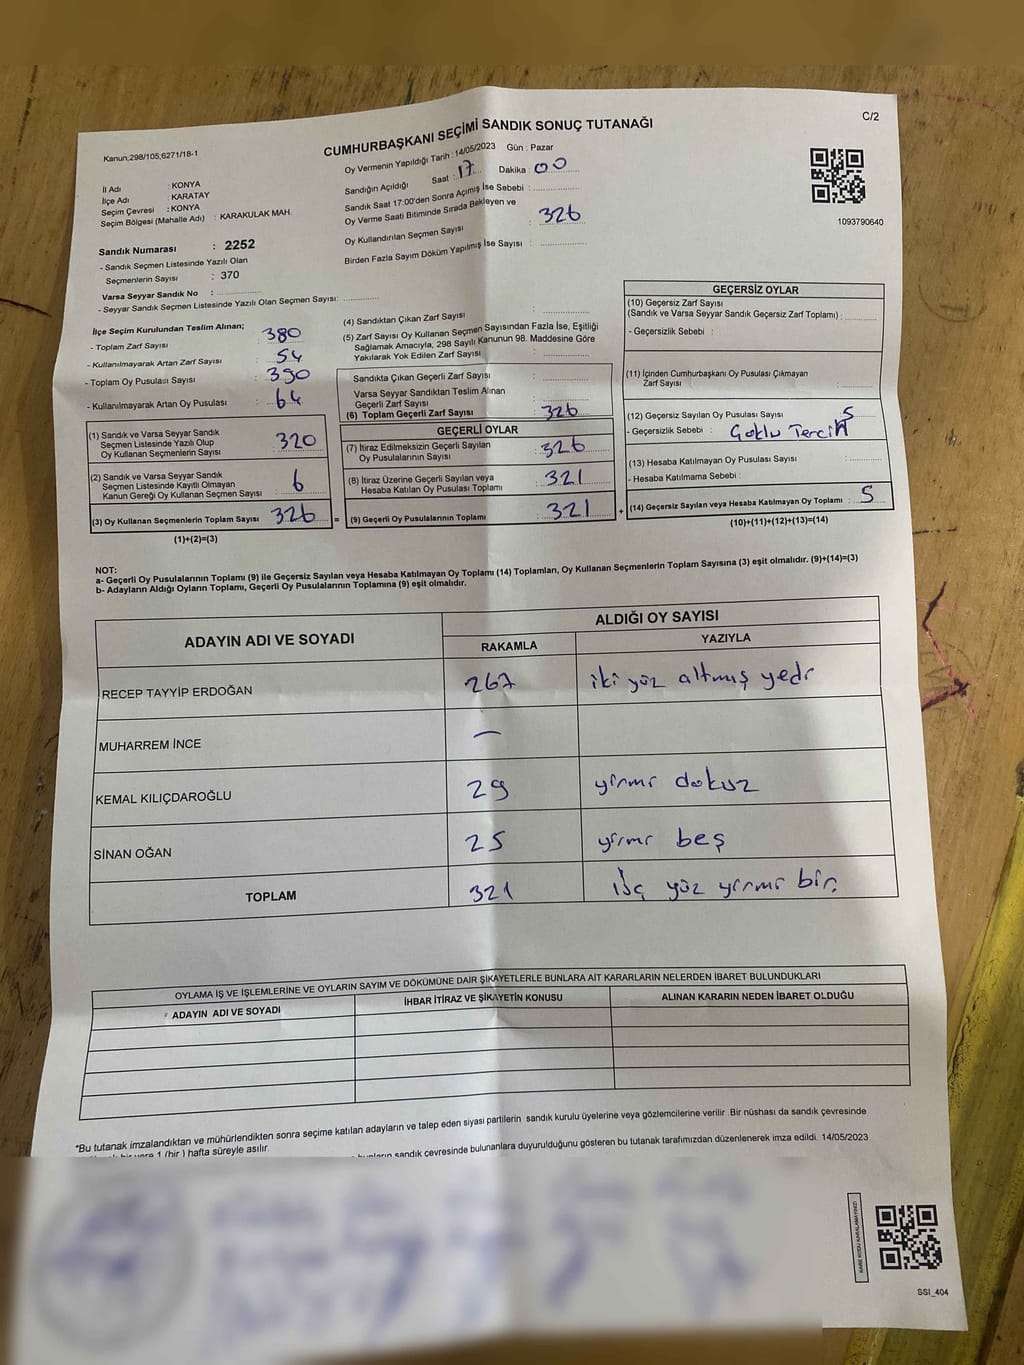 C/2
Kanun;298/105,6271/18-1
CUMHURBAŞKANI SEÇİMİ SANDIK SONUÇ TUTANAĞI
Oy Vermenin Yapıldığı Tarih : 14/05/2023 Gün : Pazar
İl Adı : KONYA
İlçe Adı : KARATAY
Seçim Çevresi : KONYA
Seçim Bölgesi (Mahalle Adı) : KARAKULAK MAH.
Sandığın Açıldığı Saat : 17 Dakika : 00
Sandık Saat 17:00'den Sonra Açımış İse Sebebi :
Oy Verme Saati Bitiminde Sırada Bekleyen ve
Oy Kullandırılan Seçmen Sayısı : 326
Birden Fazla Sayım Döküm Yapılmış İse Sayısı :
1093790640
Sandık Numarası : 2252
- Sandık Seçmen Listesinde Yazılı Olan
Seçmenlerin Sayısı : 370
Varsa Seyyar Sandık No :
- Seyyar Sandık Seçmen Listesinde Yazılı Olan Seçmen Sayısı:
İlçe Seçim Kurulundan Teslim Alınan;
- Toplam Zarf Sayısı : 380
- Kullanılmayarak Artan Zarf Sayısı : 54
- Toplam Oy Pusulası Sayısı : 390
- Kullanılmayarak Artan Oy Pusulası : 64
(1) Sandık ve Varsa Seyyar Sandık
Seçmen Listesinde Yazılı Olup
Oy Kullanan Seçmenlerin Sayısı : 320
(2) Sandık ve Varsa Seyyar Sandık
Seçmen Listesinde Kayıtlı Olmayan
Kanun Gereği Oy Kullanan Seçmen Sayısı : 6
(3) Oy Kullanan Seçmenlerin Toplam Sayısı : 326
(1)+(2)=(3)
(4) Sandıktan Çıkan Zarf Sayısı :
(5) Zarf Sayısı Oy Kullanan Seçmen Sayısından Fazla İse, Eşitliği
Sağlamak Amacıyla, 298 Sayılı Kanunun 98. Maddesine Göre
Yakılarak Yok Edilen Zarf Sayısı :
Sandıkta Çıkan Geçerli Zarf Sayısı :
Varsa Seyyar Sandıktan Teslim Alınan
Geçerli Zarf Sayısı :
(6) Toplam Geçerli Zarf Sayısı : 326
GEÇERLİ OYLAR
(7) İtiraz Edilmeksizin Geçerli Sayılan
Oy Pusulalarının Sayısı : 326
(8) İtiraz Üzerine Geçerli Sayılan veya
Hesaba Katılan Oy Pusulası Toplamı : 321
= (9) Geçerli Oy Pusulalarının Toplamı : 321
GEÇERSİZ OYLAR
(10) Geçersiz Zarf Sayısı
(Sandık ve Varsa Seyyar Sandık Geçersiz Zarf Toplamı) :
- Geçersizlik Sebebi :
(11) İçinden Cumhurbaşkanı Oy Pusulası Çıkmayan
Zarf Sayısı :
(12) Geçersiz Sayılan Oy Pusulası Sayısı : 5
- Geçersizlik Sebebi : Çoklu Tercih
(13) Hesaba Katılmayan Oy Pusulası Sayısı :
- Hesaba Katılmama Sebebi :
+ (14) Geçersiz Sayılan veya Hesaba Katılmayan Oy Toplamı : 5
(10)+(11)+(12)+(13)=(14)
NOT:
a- Geçerli Oy Pusulalarının Toplamı (9) ile Geçersiz Sayılan veya Hesaba Katılmayan Oy Toplamı (14) Toplamları, Oy Kullanan Seçmenlerin Toplam Sayısına (3) eşit olmalıdır. (9)+(14)=(3)
b- Adayların Aldığı Oyların Toplamı, Geçerli Oy Pusulalarının Toplamına (9) eşit olmalıdır.
ADAYIN ADI VE SOYADI ALDIĞI OY SAYISI
RAKAMLA YAZIYLA
RECEP TAYYİP ERDOĞAN 267 iki yüz altmış yedi
MUHARREM İNCE —
KEMAL KILIÇDAROĞLU 29 yirmi dokuz
SİNAN OĞAN 25 yirmi beş
TOPLAM 321 üç yüz yirmi bir.
OYLAMA İŞ VE İŞLEMLERİNE VE OYLARIN SAYIM VE DÖKÜMÜNE DAİR ŞİKAYETLERLE BUNLARA AİT KARARLARIN NELERDEN İBARET BULUNDUKLARI
ADAYIN ADI VE SOYADI İHBAR İTİRAZ VE ŞİKAYETİN KONUSU ALINAN KARARIN NEDEN İBARET OLDUĞU
*Bu tutanak imzalandıktan ve mühürlendikten sonra seçime katılan adayların ve talep eden siyasi partilerin sandık kurulu üyelerine veya gözlemcilerine verilir .Bir nüshası da sandık çevresinde
1 (bir ) hafta süreyle asılır.
sandık çevresinde bulunanlara duyurulduğunu gösteren bu tutanak tarafımızdan düzenlenerek imza edildi. 14/05/2023
KARE KODU KARALAMAYINIZ!
SSI_404